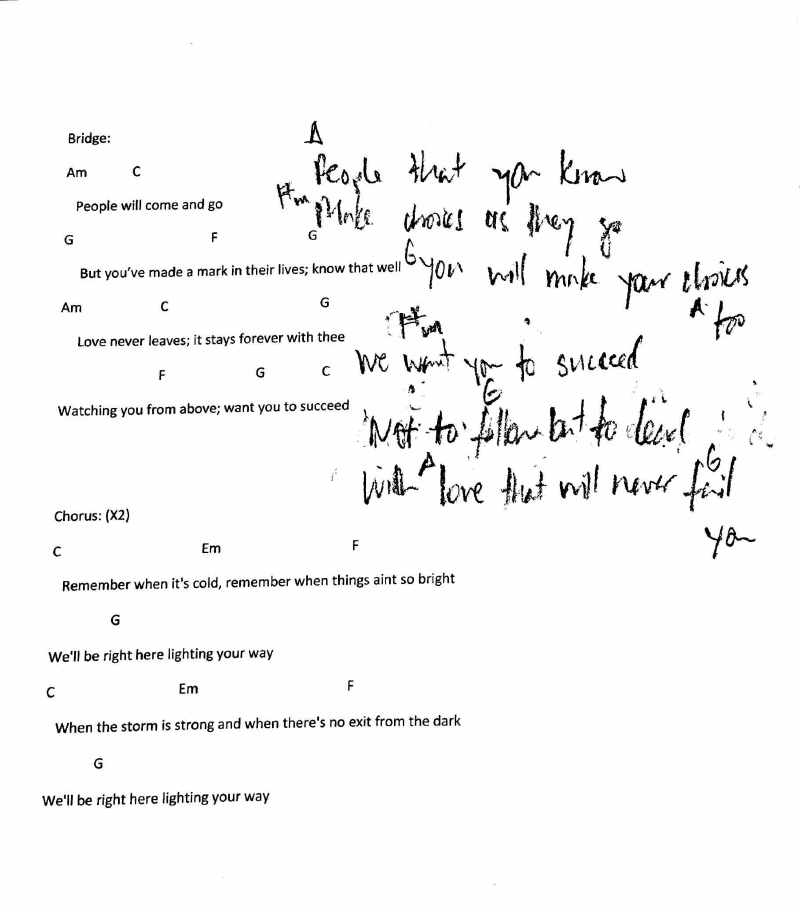 Bridge:
Am C
People will come and go
G F G
But you've made a mark in their lives; know that well
Am C G
Love never leaves; it stays forever with thee
F G C
Watching you from above; want you to succeed
A
People that you know
F#m
Make choices as they go
G
you will make your choices
A too
F#m
We want you to succeed
G
Not to follow but to lead
A G
With love that will never fail
you
Chorus: (X2)
C Em F
Remember when it's cold, remember when things aint so bright
G
We'll be right here lighting your way
C Em F
When the storm is strong and when there's no exit from the dark
G
We'll be right here lighting your way